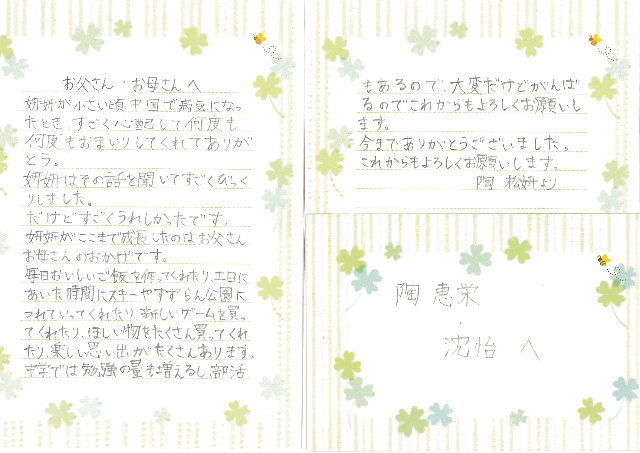 お父さん・お母さんへ
妍妍が小さい頃中国で病気になっ
たとき、すごく心配して何度も
何度もおまいりしてくれてありが
とう。
妍妍はその話を聞いてすごくびっく
りしました。
だけどすごくうれしかったです。
妍妍がここまで成長したのはお父さん
お母さんのおかげです。
毎日おいしいご飯を作ってくれたり、土日に
あいた時間にスキーやすずらん公園に
つれていってくれたり、新しいゲームを買っ
てくれたり、ほしい物をたくさん買ってくれ
たり、楽しい思い出がたくさんあります。
中学では勉強の量も増えるし、部活
もあるので、大変だけどがんば
るのでこれからもよろしくお願いし
ます。
今までありがとうございました。
これからもよろしくお願いします。
陶 松妍より
陶 恵栄
・
沈怡 へ